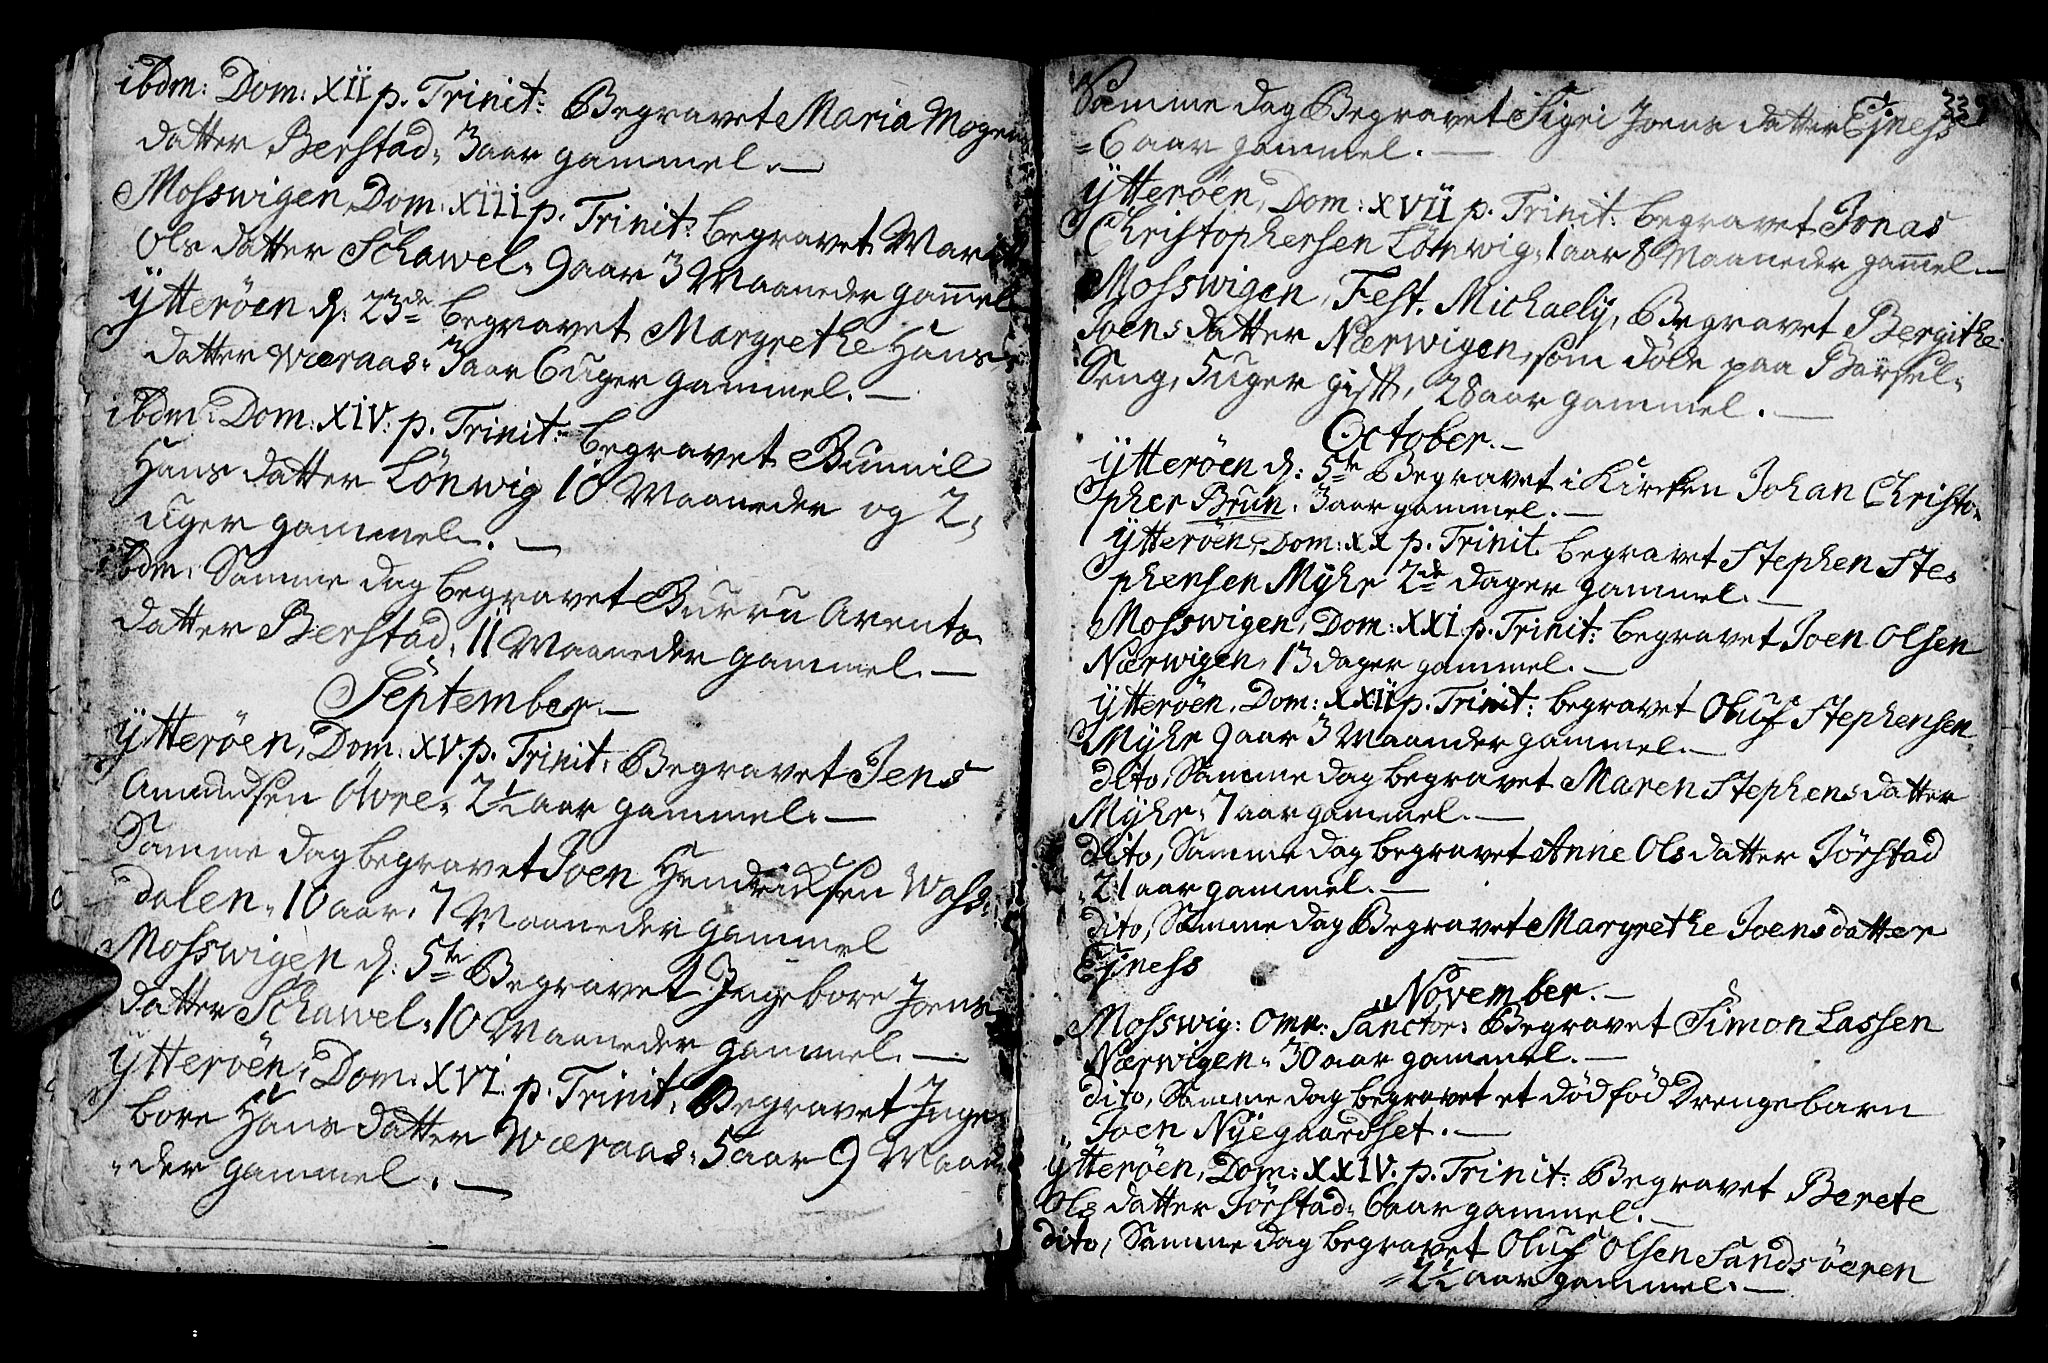 ibdm: Dom: XII p. Trinit: Begravet Maria Mogens
datter Berstad, 3 aar gammel.
Mosswigen, Dom: XIII p. Trinit: begravet Marit
Ols datter Schawel, 9 aar 3 Maaneder gam̅el
Ytterøen d: 23de begravet Margrethe Hans
datter Wæraas, 3 aar 6 uger gammel.
ibdm: Dom: XIV: p. Trinit: begravet Bunnil
Hans datter Lönwig 10 Maaneder og 2
uger gammel.
ibdm, Samme dag begravet Burru Arents
datter Berstad, 11 Maaneder gammel.
September.
Ytterøen, Dom: XV. p. Trinit: Begravet Jens
Amundsen Øvre, 2½ aar gammel.
Samme dag begravet Joen Hendriksen Wass-
dalen, 10 aar, 7 Maaneder gammel
Mosswigen d: 5te Begravet Ingebore Joens
datter Schawel, 10 Maaneder gammel.
Ytterøen, Dom: XVI. p. Trinit: Begravet Inge
bore Hans datter Wæraas, 5 aar 9 Maane
der gammel.
Samme dag Begravet Sigri Joens datter Ejness 339
6 aar gammel.
Ytterøen, Dom: XVII p. Trinit: begravet Jonas
Christophersen Lönwig, 1 aar 8 Maaneder gam̅el
Mosswigen, Fest. Michaely, Begravet Bergithe
Joens datter Nærwigen, som døde paa Barsel-
Seng, 5 uger gift, 28 aar gammel.
October.
Ytterøen d: 5te Begravet i Kircken Johan Christo-
pher Brun, 3 aar gammel.
Ytterøen, Dom: XX p. Trinit. begravet Stephen Ste-
phensen Myhr 2de dager gammel.
Mosswigen, Dom: XXI p. Trinit: begravet Joen Olsen
Nærwigen, 13 dager gammel.
Ytterøen, Dom: XXII p. Trinit: begravet Oluf Stephensen
Myhr 9 aar 3 Maaneder gammel.
dito, Samme dag begravet Maren Stephens datter
Myhr, 7 aar gammel.
dito, Samme dag begravet Anne Ols datter Jörstad
21 aar gammel.
dito, Samme dag Begravet Margrethe Joens datter
Ejness
November.
Mosswig: Omn: Sanctor: Begravet Simon Lassen
Nærwigen, 30 aar gammel.
dito, Samme dag begravet et død fød Drengebarn
Joen Nyegaardset.
Ytterøen, Dom: XXIV. p. Trinit: Begravet Berete
Ols datter Jörstad, 6 aar gammel.
dito, Samme dag begravet Oluf Olsen Sandsøeren
2½ aar gammel.